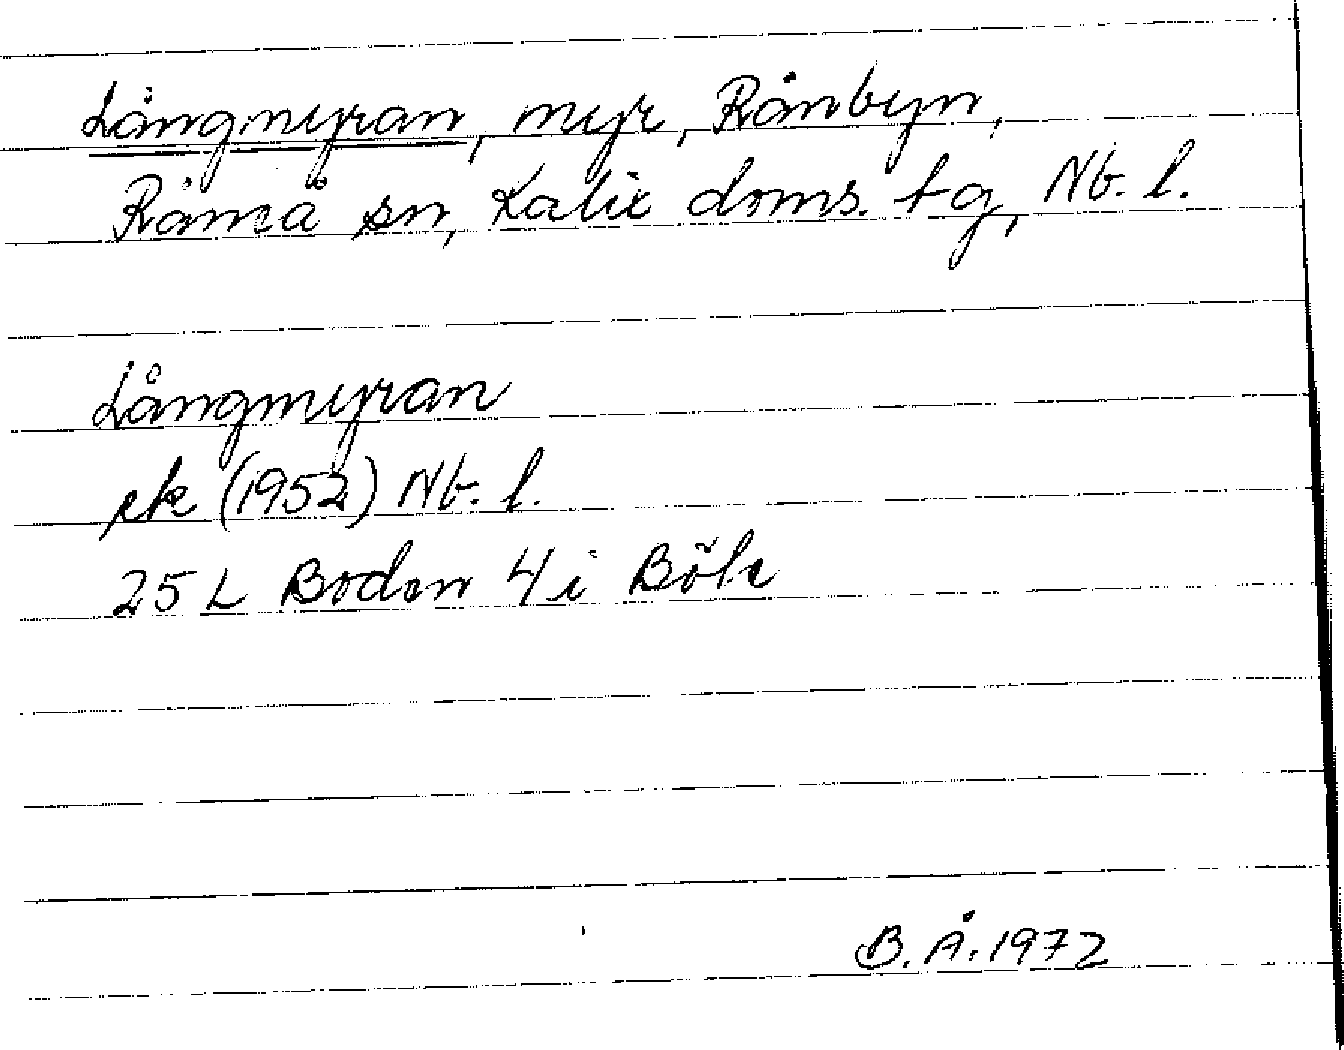 Långmyran, myr, Rånbyn,
Råneå sn, Kalix doms. tg, Nb. l.
Långmyran
rk (1952) Nb. l.
25 L Boden 4 i Böle
B. Å. 1972